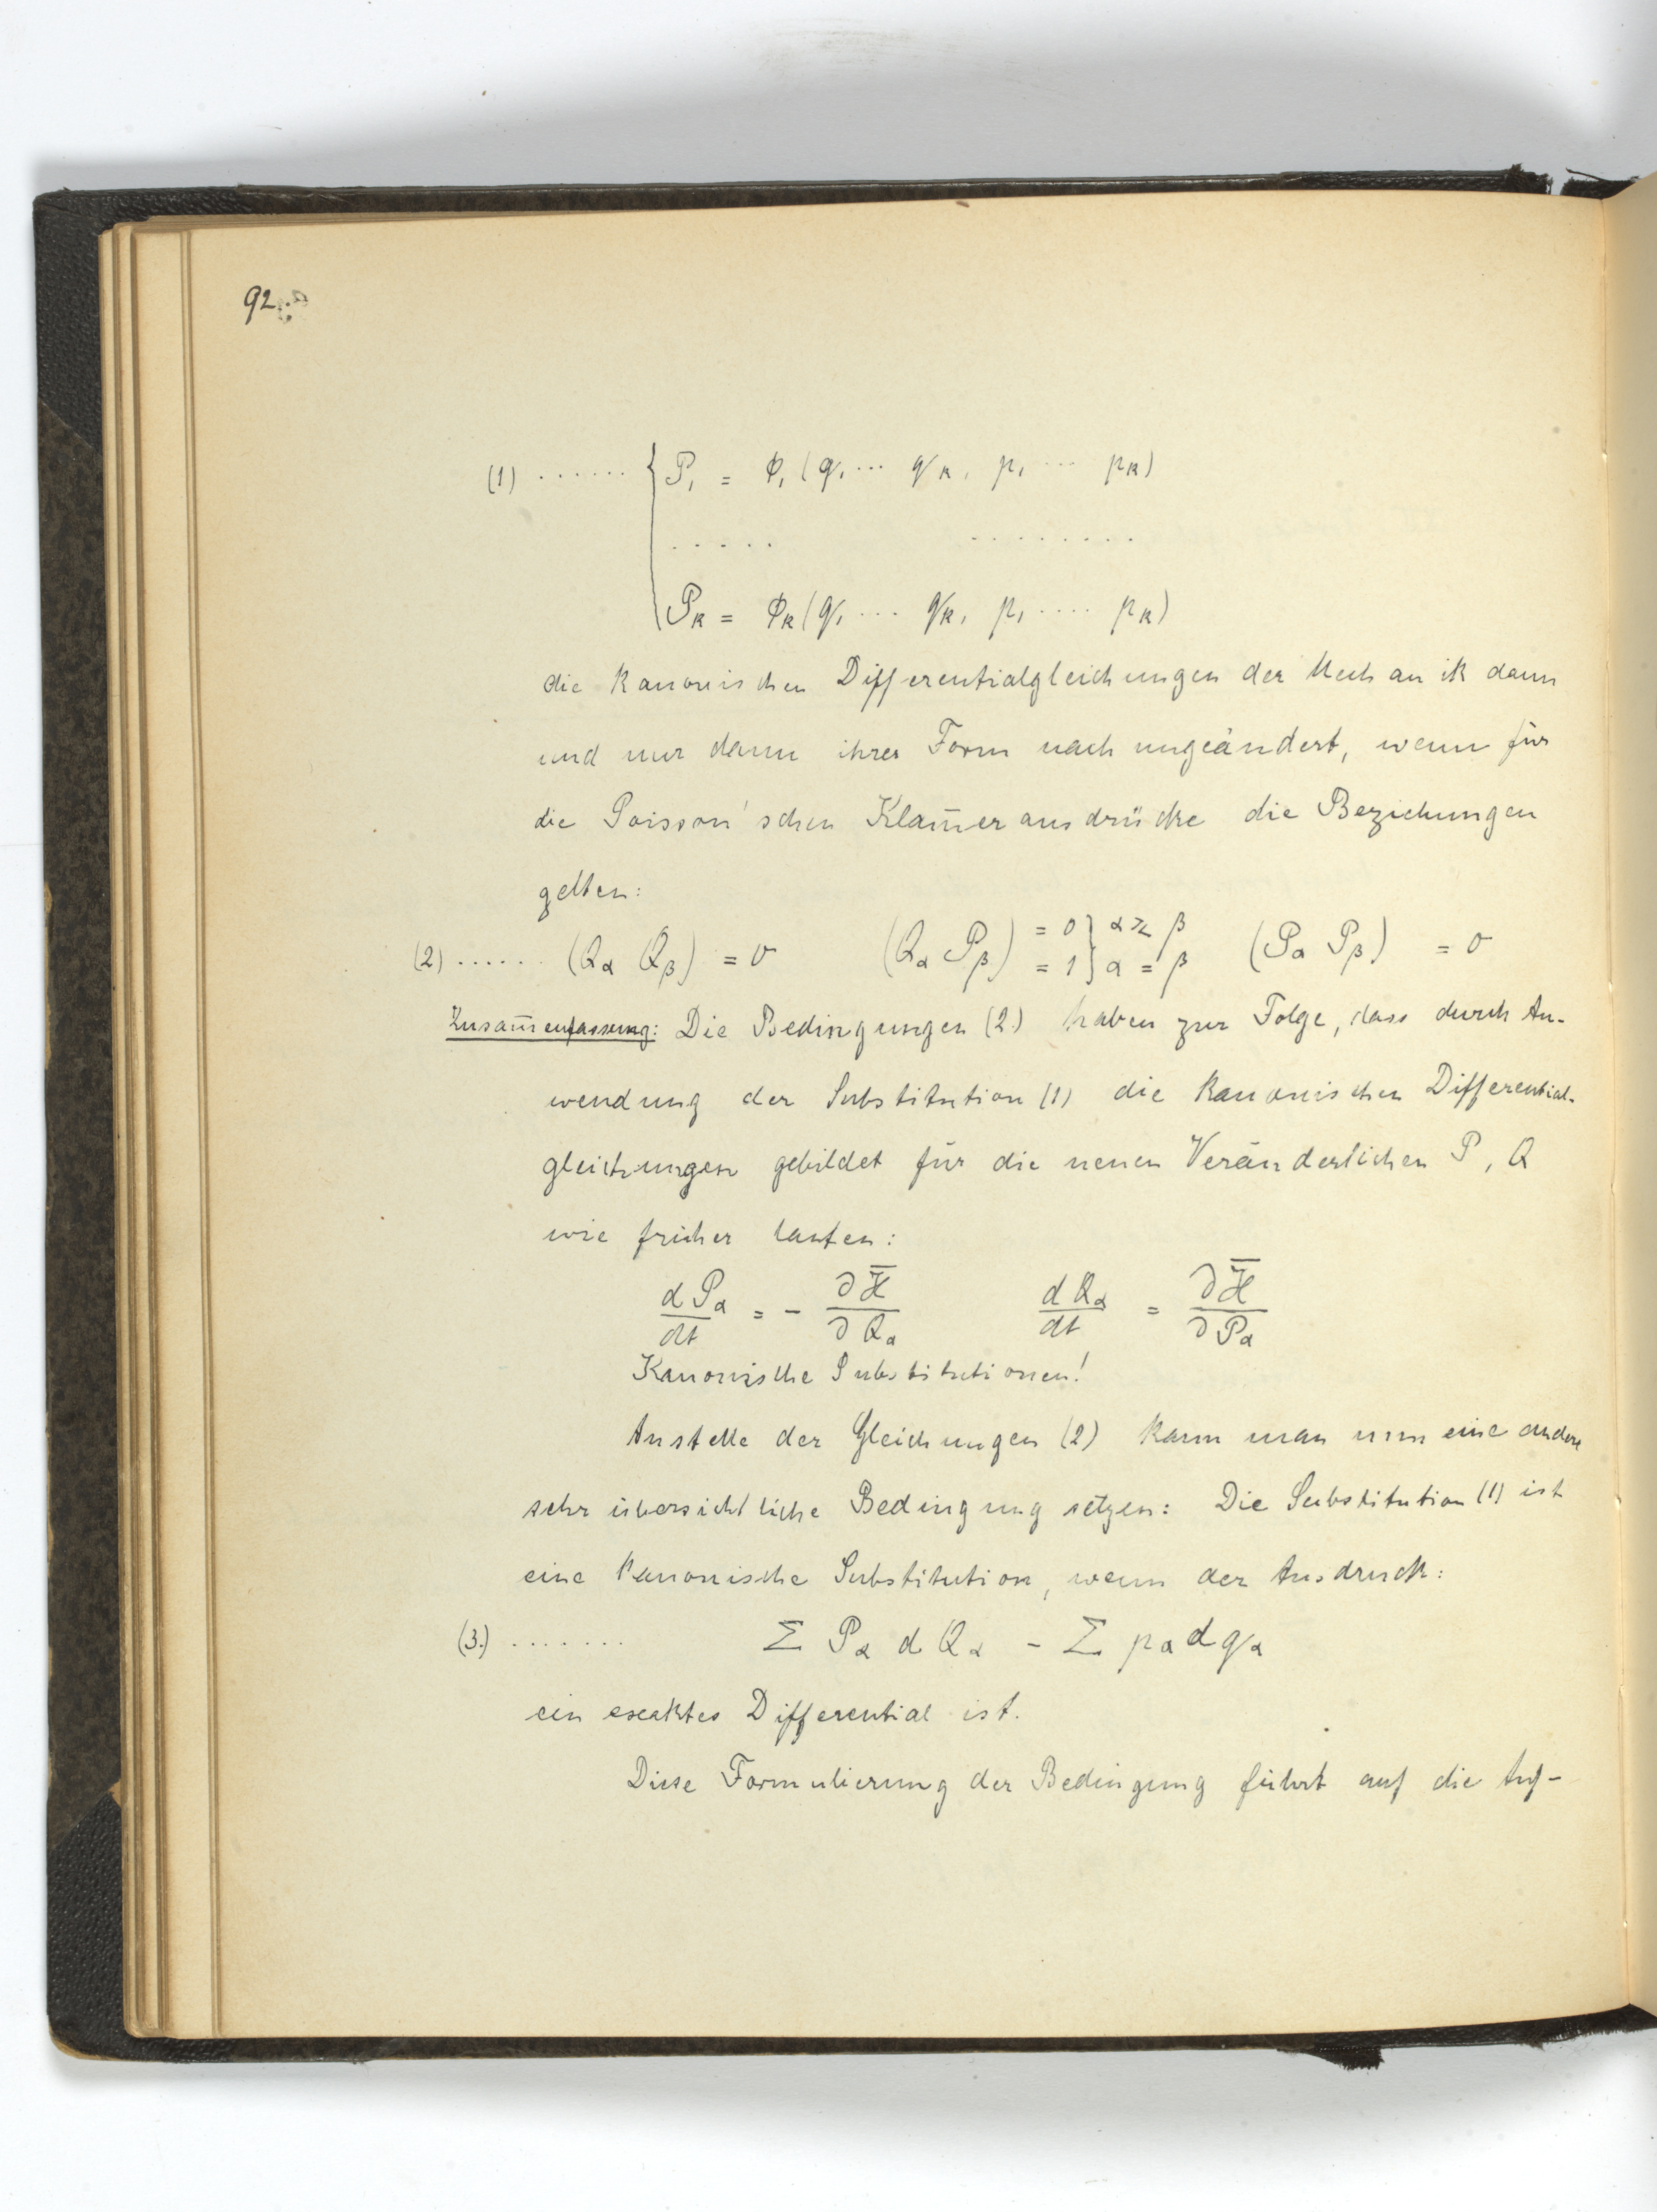 92.
(1) ...... { P₁ = φ₁ (q₁ ... q_k, p₁ ... p_k)
..... ........
P_k = φ_k (q₁ ... q_k, p₁ .... p_k)
die kanonischen Differentialgleichungen der Mechanik dann
und nur dann ihrer Form nach ungeändert, wenn für
die Poisson'schen Klam̄erausdrücke die Beziehungen
gelten:
(2) ...... (Q_α Q_β) = 0 (Q_α P_β) = 0 } α ≷ β = 1 } α = β (P_α P_β) = 0
Zusam̄enfassung: Die Bedingungen (2.) haben zur Folge, dass durch An-
wendung der Substitution (1) die kanonischen Differential-
gleichungen gebildet für die neuen Veränderlichen P, Q
wie früher lauten:
dP_α/dt = - ∂H̄/∂Q_α dQ_α/dt = ∂H̄/∂P_α
Kanonische Substitutionen!
Anstelle der Gleichungen (2) kann man nun eine andere
sehr übersichtliche Bedingung setzen: Die Substitution (1) ist
eine kanonische Substitution, wenn der Ausdruck:
(3.) ....... Σ P_α d Q_α - Σ p_α d q_α
ein exaktes Differential ist.
Diese Formulierung der Bedingung führt auf die Auf-